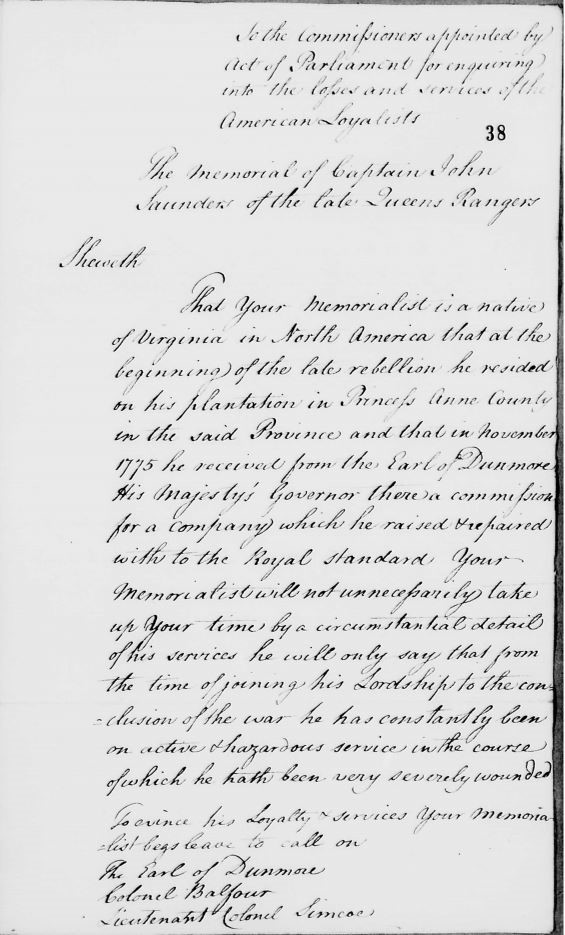 To the Commissioners appointed by
Act of Parliament for enquiring
into the losses and services of the
American Loyalists
38
The Memorial of Captain John
Saunders of the late Queens Rangers
Sheweth
That Your Memorialist is a native
of Virginia in North America that at the
beginning of the late rebellion he resided
on his plantation in Princess Anne County
in the said Province and that in November
1775 he received from the Earl of Dunmore
His Majesty's Governor there a commission
for a company which he raised & repaired
with to the Royal standard Your
Memorialist will not unnecessarily take
up Your time by a circumstantial detail
of his services he will only say that from
the time of joining his Lordship to the con-
-clusion of the war he has constantly been
on active & hazardous service in the course
of which he hath been very severely wounded
To evince his Loyalty & services Your Memoria-
-list begs leave to call on
The Earl of Dunmore
Colonel Balfour
Lieutenant Colonel Simcoe